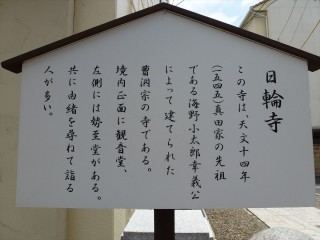 日輪寺
この寺は、天文十四年
(一五四五)真田家の先祖
である海野小太郎幸義公
によって建てられた
曹洞宗の寺である。
境内正面に観音堂、
左側には勢至堂がある。
共に由緒を尋ねて詣る
人が多い。